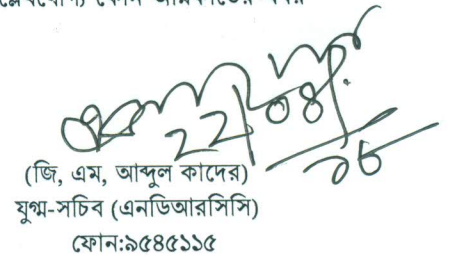 ২২/০৪/১৮
(জি, এম, আব্দুল কাদের)
যুগ্ম-সচিব (এনডিআরসিসি)
ফোন:৯৫৪৫১১৫